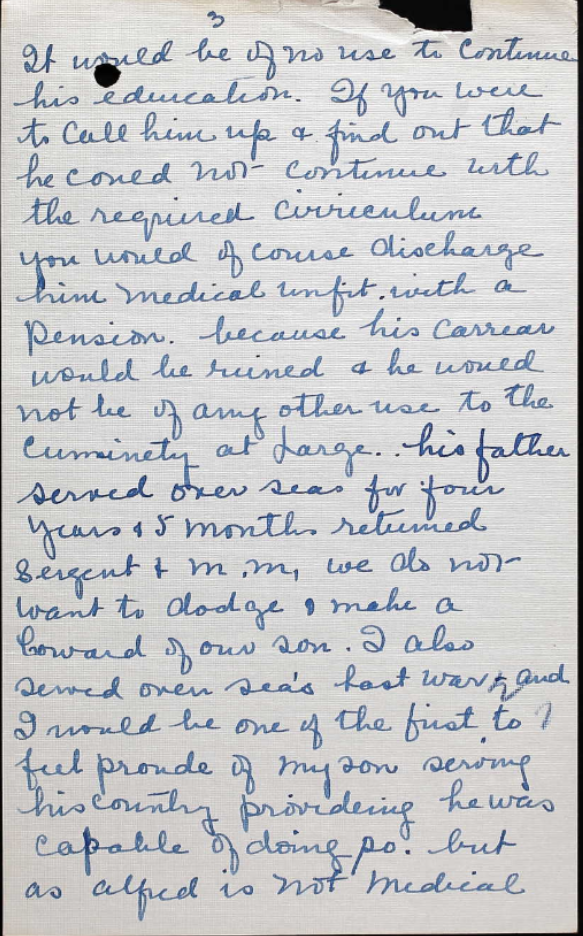 3
It would be of no use to continue
his education. If you were
to Call him up & find out that
he coued not continue with
the requiered Cirriculum
you would of course discharge
him medical unfit. with a
Pension. because his Carrear
would be ruined & he would
not be of any other use to the
Cuminety at Large.. his father
served over seas for four
years & 5 months returned
Sergent & M.M, we do not
want to dodge & make a
Coward of our son. I also
served over sea's last war, and
I would be one of the first to
feel proude of my son serving
his country provideing he was
capable of doing so. but
as alfred is not medical